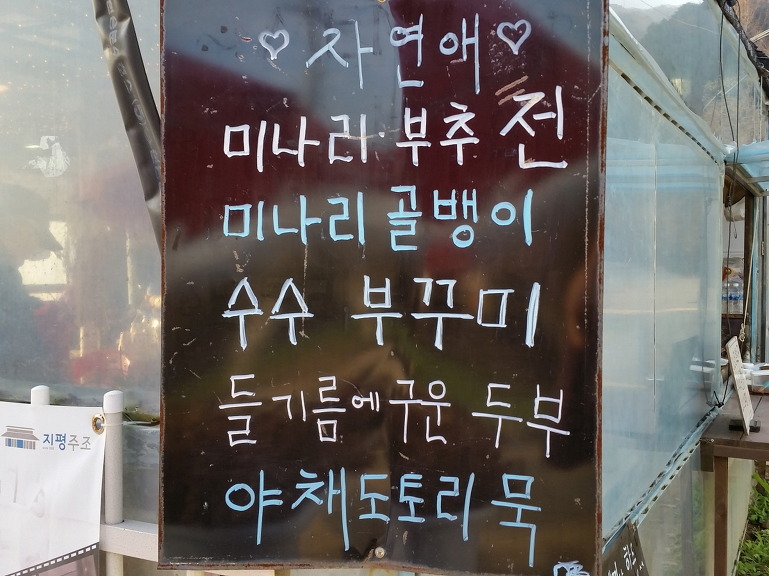 ♡ 자연애 ♡
미나리 부추전
미나리 골뱅이
수수 부꾸미
들기름에구운 두부
야채도토리묵
지평주조